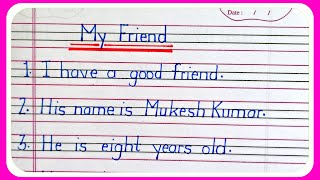 Date: / /
My Friend
1. I have a good friend.
2. His name is Mukesh Kumar.
3. He is eight years old.